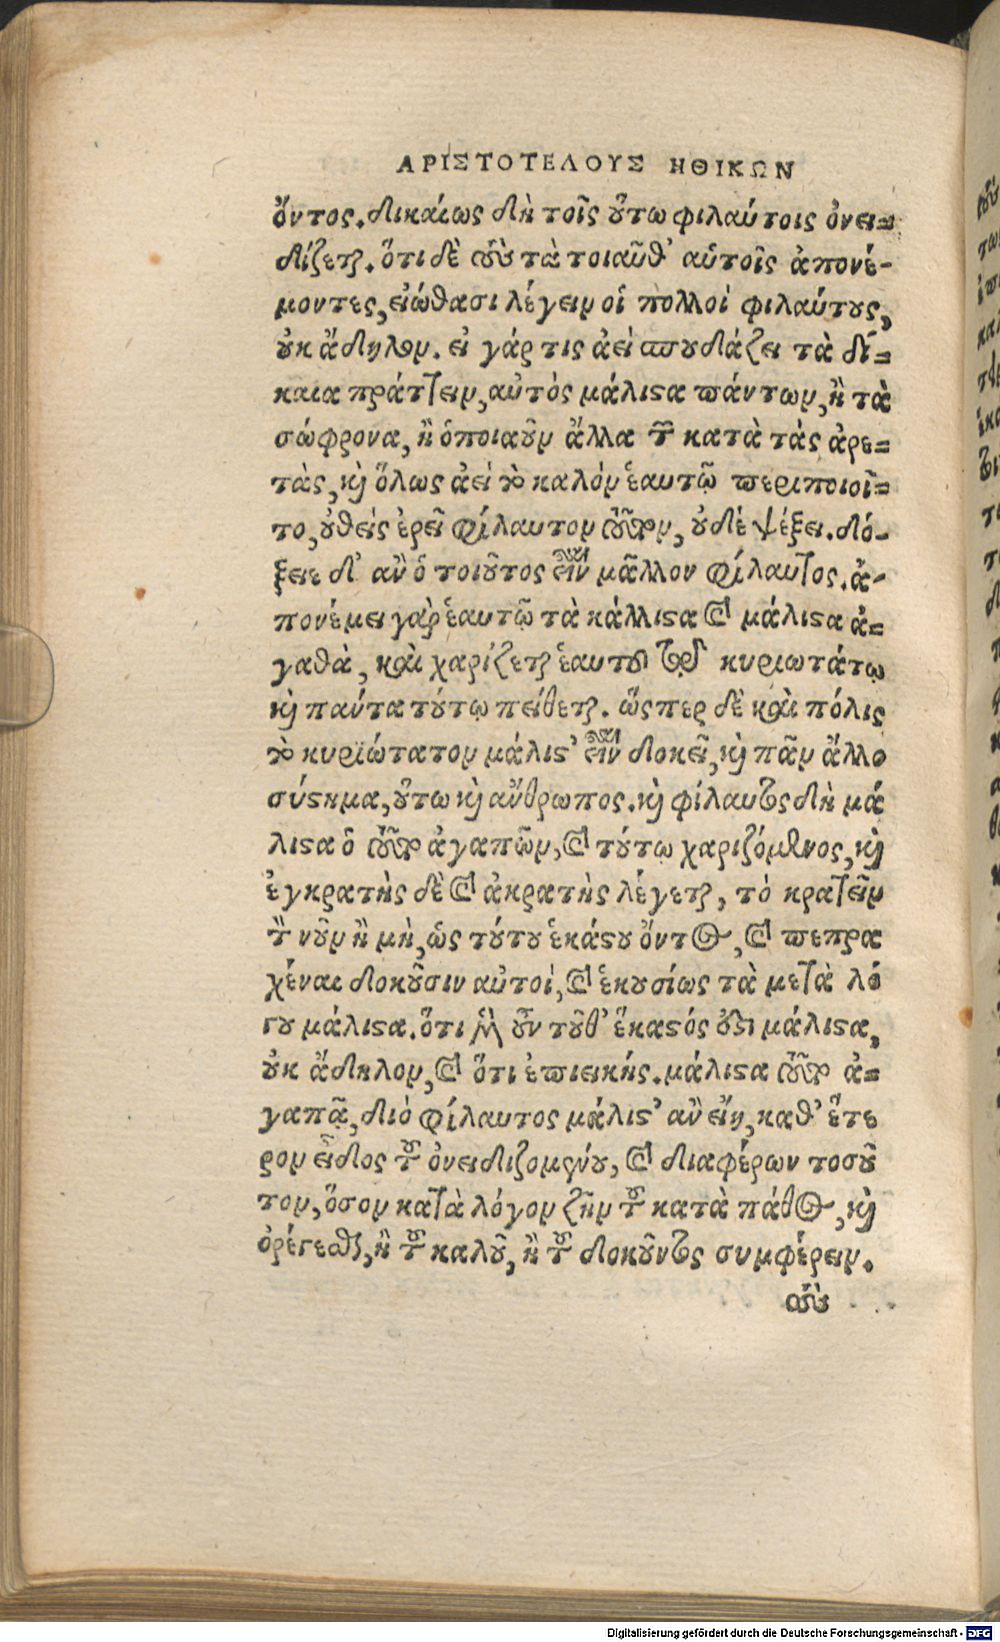 ΑΡΙΣΤΟΤΕΛΟΥΣ ΗΘΙΚΩΝ
ὄντος. δικαίως δὴ τοῖς ὅτω φιλαύτοις ὀνει=
δίζεται. ὅτι δὲ τοὺς τὰ τοιαῦθ' αὑτοῖς ἀπονέ-
μοντες, εἰώθασι λέγειν οἱ πολλοὶ φιλαύτους,
οὐκ ἄδηλον. εἰ γάρ τις ἀεὶ σπουδάζει τὰ δί=
καια πράττειν, αὐτὸς μάλιστα πάντων, ἢ τὰ
σώφρονα, ἢ ὁποιαοῦν ἄλλα τῶν κατὰ τὰς ἀρε=
τὰς, καὶ ὅλως ἀεὶ τὸ καλὸν ἑαυτῷ περιποιοῖ=
το, οὐθεὶς ἐρεῖ φίλαυτον τοῦτον, οὐδὲ ψέξει. δό-
ξειε δ' ἂν ὁ τοιοῦτος εἶναι μᾶλλον φίλαυτος. ἀ-
πονέμει γὰρ ἑαυτῷ τὰ κάλλιστα καὶ μάλιστα ἀ=
γαθὰ, καὶ χαρίζεται ἑαυτοῦ τῷ κυριωτάτῳ
καὶ πάντα τούτῳ πείθεται. ὥσπερ δὲ καὶ πόλις
τὸ κυριώτατον μάλιστ' εἶναι δοκεῖ, καὶ πᾶν ἄλλο
σύστημα, οὕτω καὶ ἄνθρωπος. καὶ φίλαυτος δὴ μά
λιστα ὁ τοῦτο ἀγαπῶν, καὶ τούτῳ χαριζόμενος, καὶ
ἐγκρατὴς δὲ καὶ ἀκρατὴς λέγεται, τὸ κρατεῖν
τὸν νοῦν ἢ μὴ, ὡς τούτου ἑκάστου ὄντος, καὶ πεπρα
χέναι δοκοῦσιν αὐτοὶ, καὶ ἑκουσίως τὰ μετὰ λό
γου μάλιστα. ὅτι μὲν οὖν τοῦθ' ἕκαστός ἐστι μάλιστα,
οὐκ ἄδηλον, καὶ ὅτι ἐπιεικής. μάλιστα τοῦτο ἀ=
γαπᾷ, διὸ φίλαυτος μάλιστ' ἂν εἴη, καθ' ἕτε
ρον εἶδος τοῦ ὀνειδιζομένου, καὶ διαφέρων τοσοῦ
τον, ὅσον κατὰ λόγον ζῆν τοῦ κατὰ πάθος, καὶ
ὀρέγεσθαι, ἢ τοῦ καλοῦ, ἢ τοῦ δοκοῦντος συμφέρειν.
τοὺς
Digitalisierung gefördert durch die Deutsche Forschungsgemeinschaft - DFG